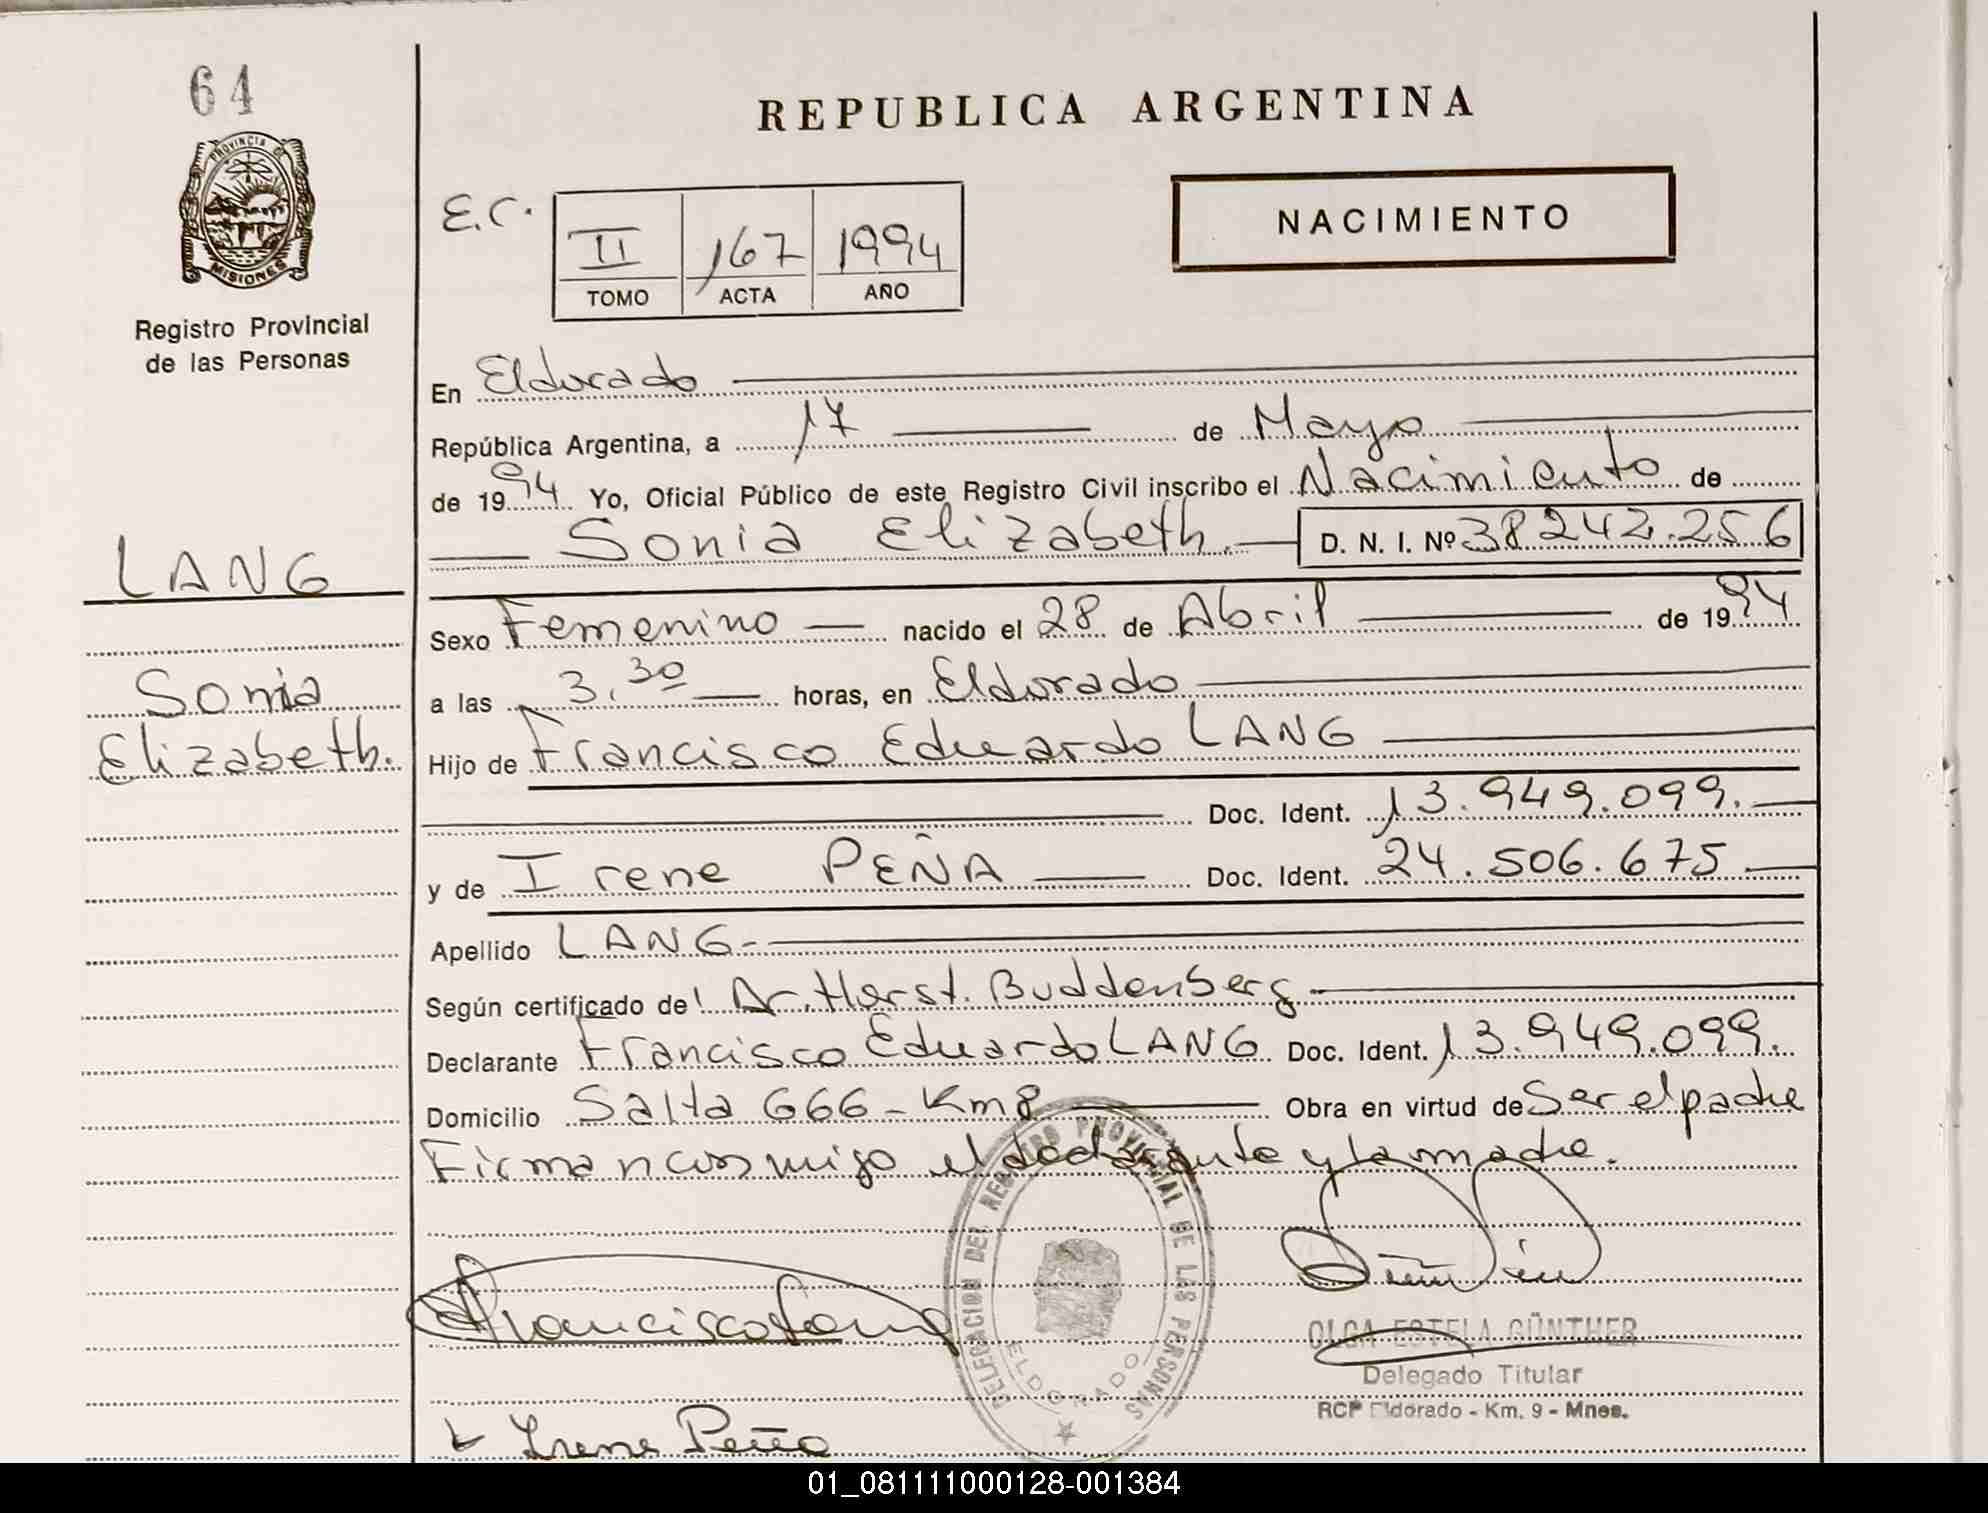 64
PROVINCIA DE
MISIONES
Registro Provincial
de las Personas
LANG
Sonia
Elizabeth.
REPUBLICA ARGENTINA
E.C.
II 167 1994
TOMO ACTA AÑO
NACIMIENTO
En Eldorado
República Argentina, a 17 de Mayo
de 1994 Yo, Oficial Público de este Registro Civil inscribo el Nacimiento de
Sonia Elizabeth. D. N. I. Nº 38242.256
Sexo Femenino nacido el 28 de Abril de 1994
a las 3.30 horas, en Eldorado
Hijo de Francisco Eduardo LANG
Doc. Ident. 13.949.099.
y de Irene PEÑA Doc. Ident. 24.506.675
Apellido LANG.-
Según certificado de Dr. Horst. Buddenberg
Declarante Francisco Eduardo LANG Doc. Ident. 13.949.099.
Domicilio Salta 666 - Km 8 Obra en virtud de Ser el padre
Firman conmigo el declarante y la madre.
DELEGACION DEL REGISTRO PROVINCIAL DE LAS PERSONAS
ELDORADO
Francisco Lang
OLGA ESTELA GÜNTHER
Delegado Titular
RCP Eldorado - Km. 9 - Mnes.
Irene Peña
01_081111000128-001384